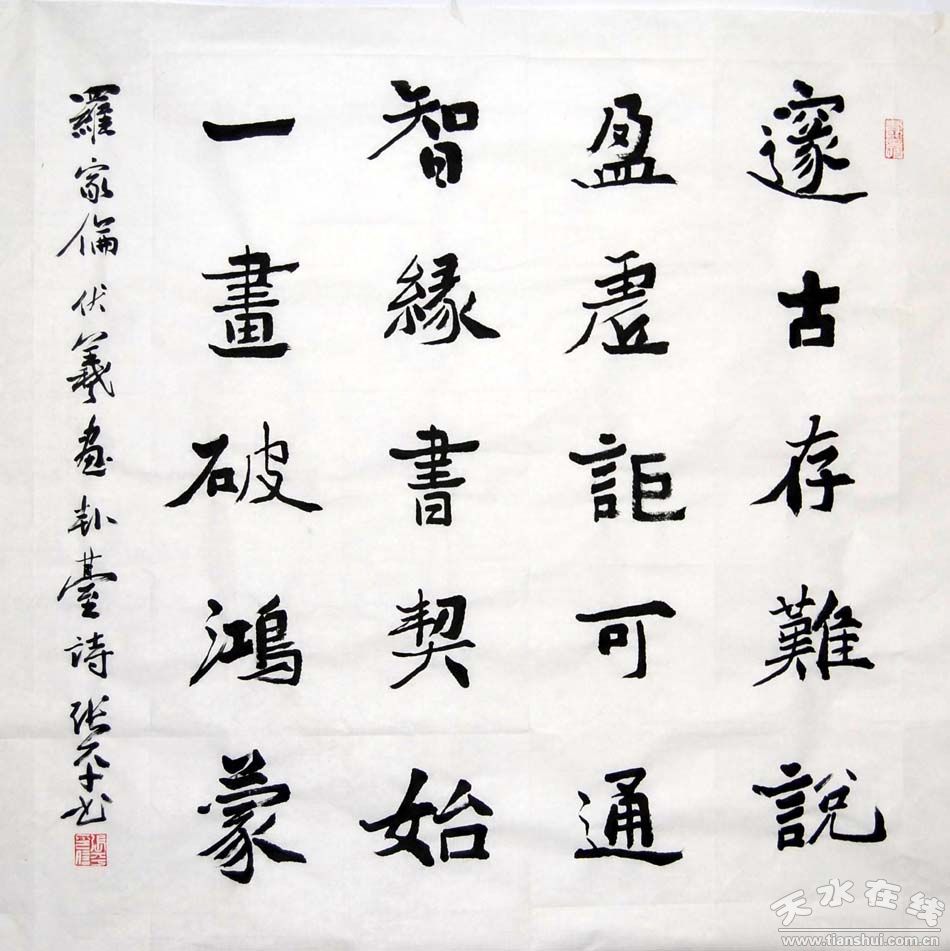 邃古存難說
盈虛詎可通
智緣書契始
一畫破鴻蒙
羅家倫伏羲畫卦臺詩 張六十書
天水在线
www.tianshui.com.cn